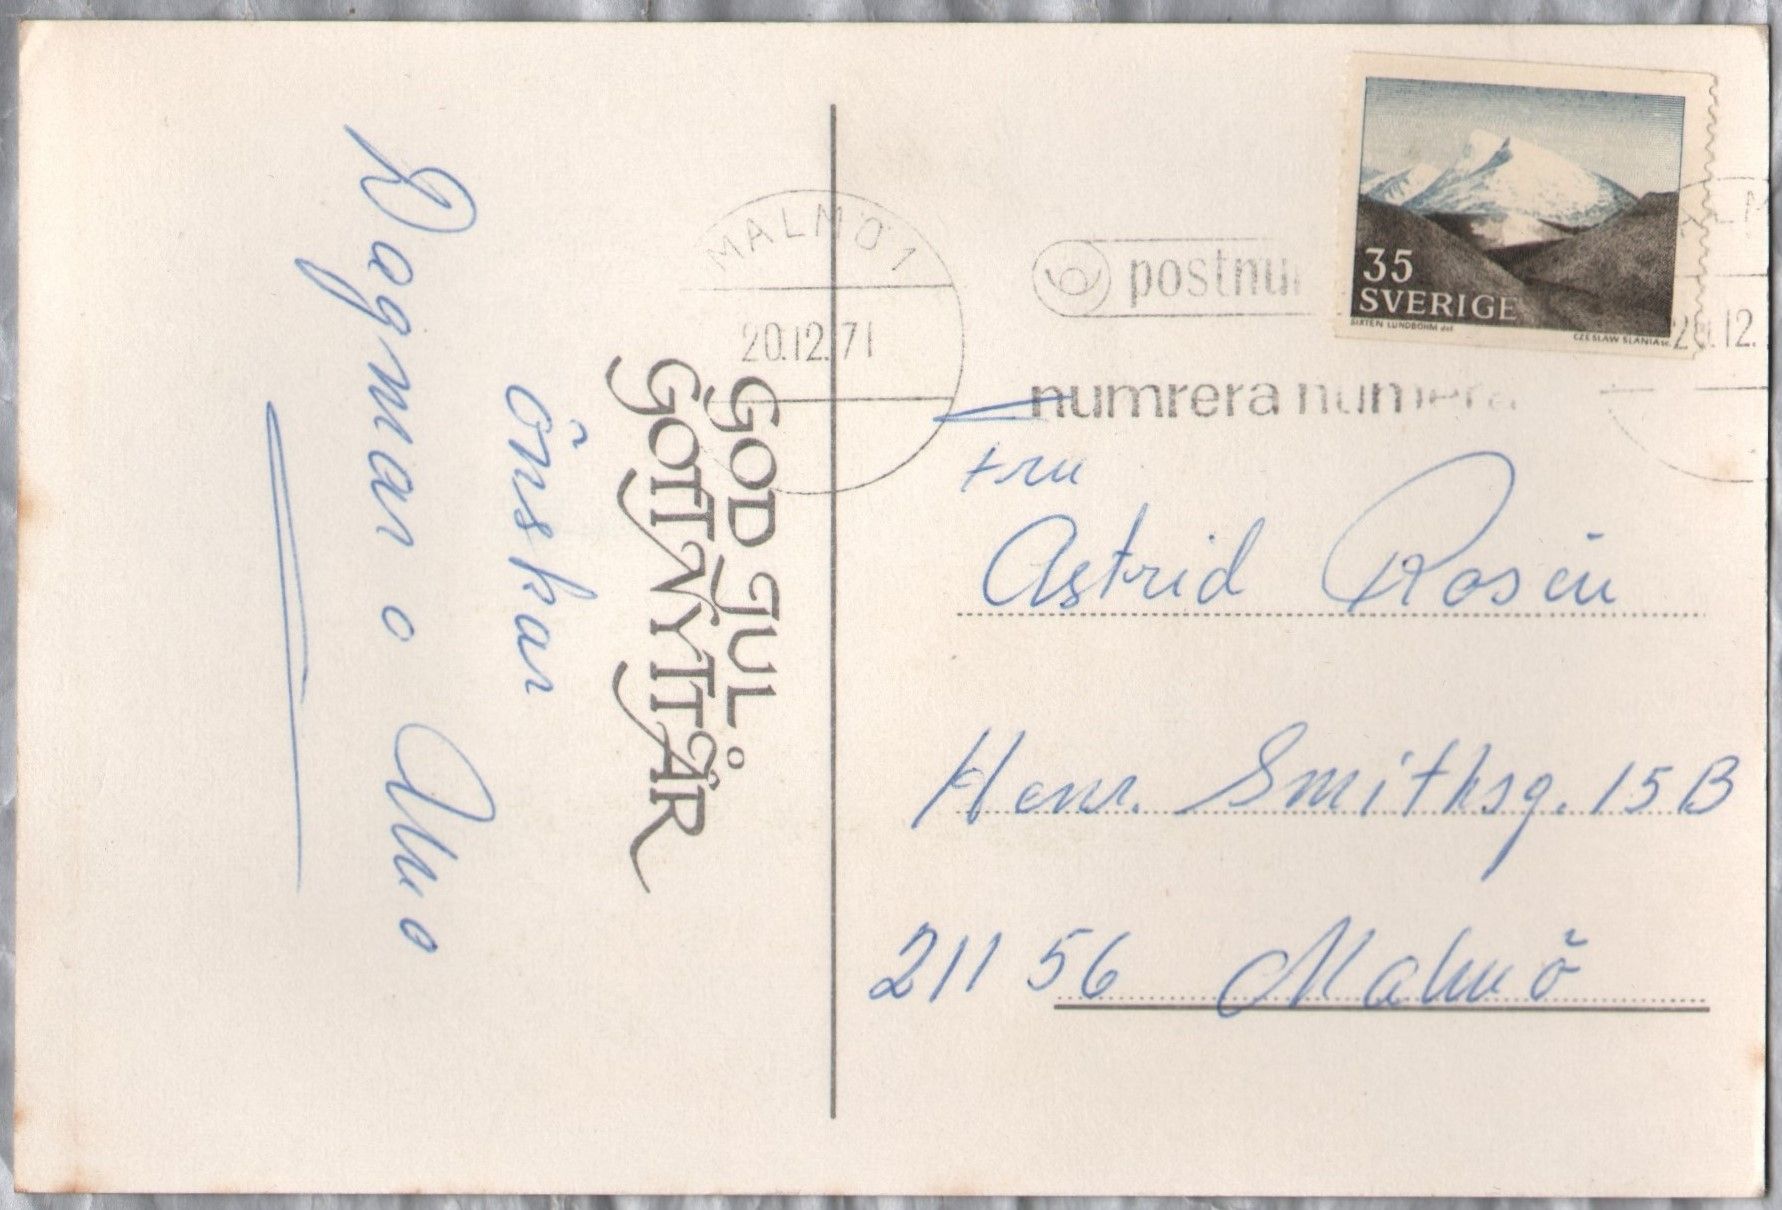 GOD JUL
GOTT NYTT ÅR
önskar
Dagmar o
MALMÖ 1
20.12.71
postnu
numrera numera
35
SVERIGE
SIXTEN LUNDBOHM del
CZESLAW SLANIA sc.
20.12.
Fru
Astrid Rosén
Henr. Smithsg. 15 B
211 56 Malmö